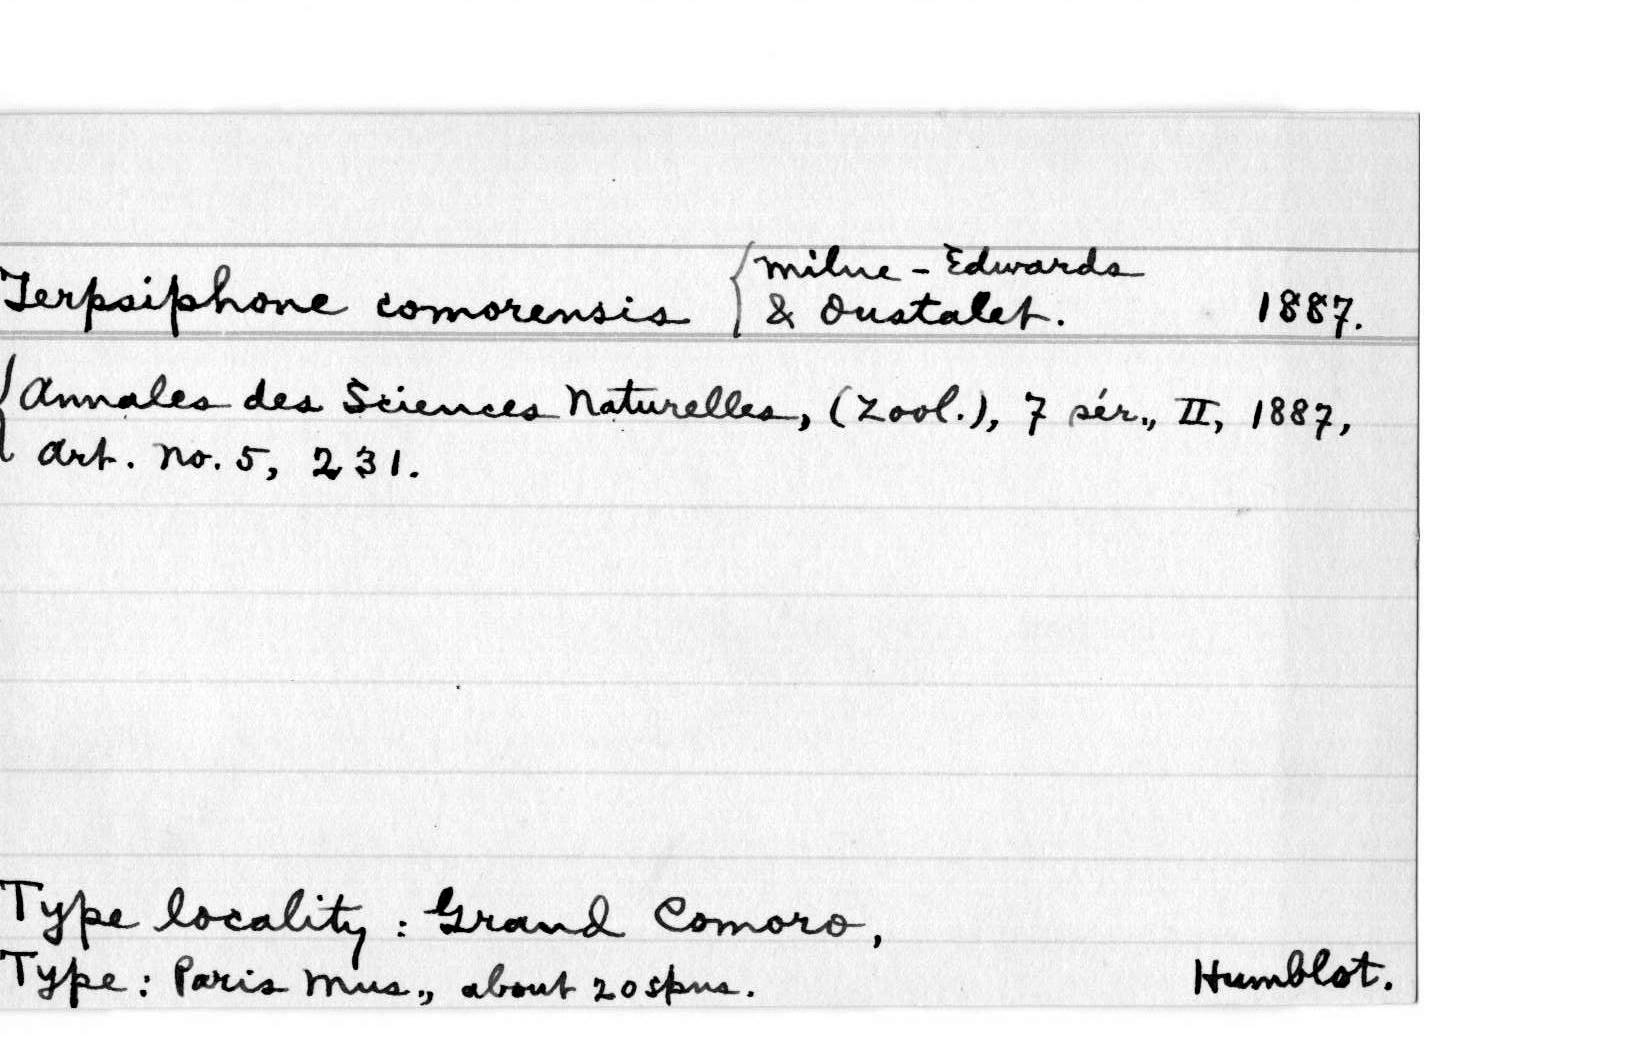 Terpsiphone comorensis { Milne-Edwards
& Oustalet. 1887.
Annales des Sciences Naturelles, (Zool.), 7 sér., II, 1887,
Art. No. 5, 231.
Type locality: Grand Comoro,
Type: Paris Mus., about 20 spns. Humblot.